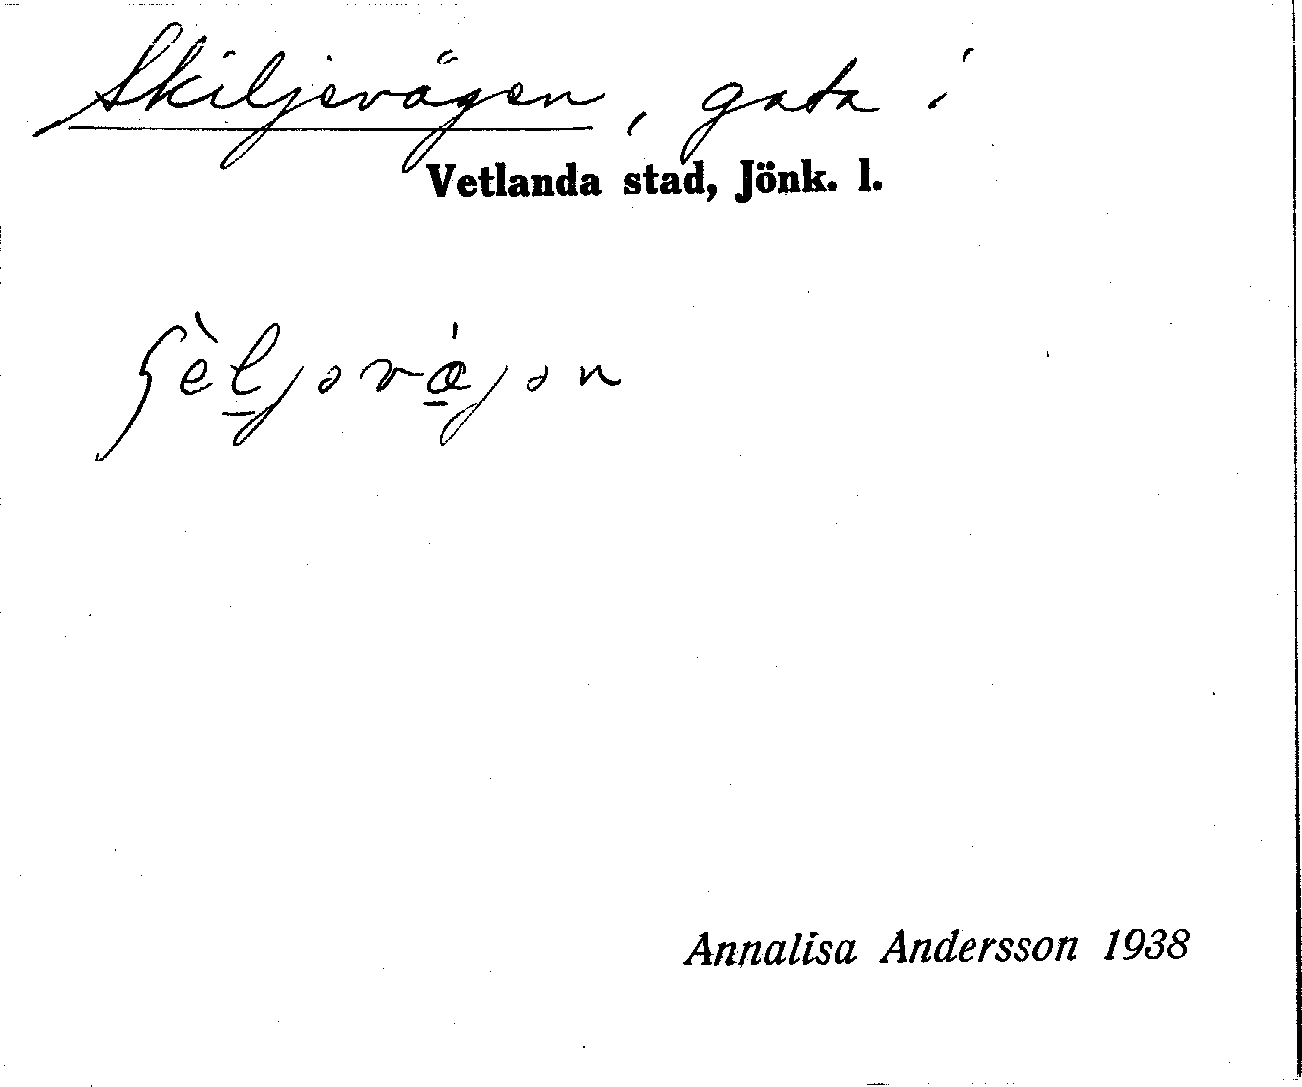 Skiljevägen, gata i
Vetlanda stad, Jönk. l.
ʃèl̠jəvæ̠̍jən
Annalisa Andersson 1938